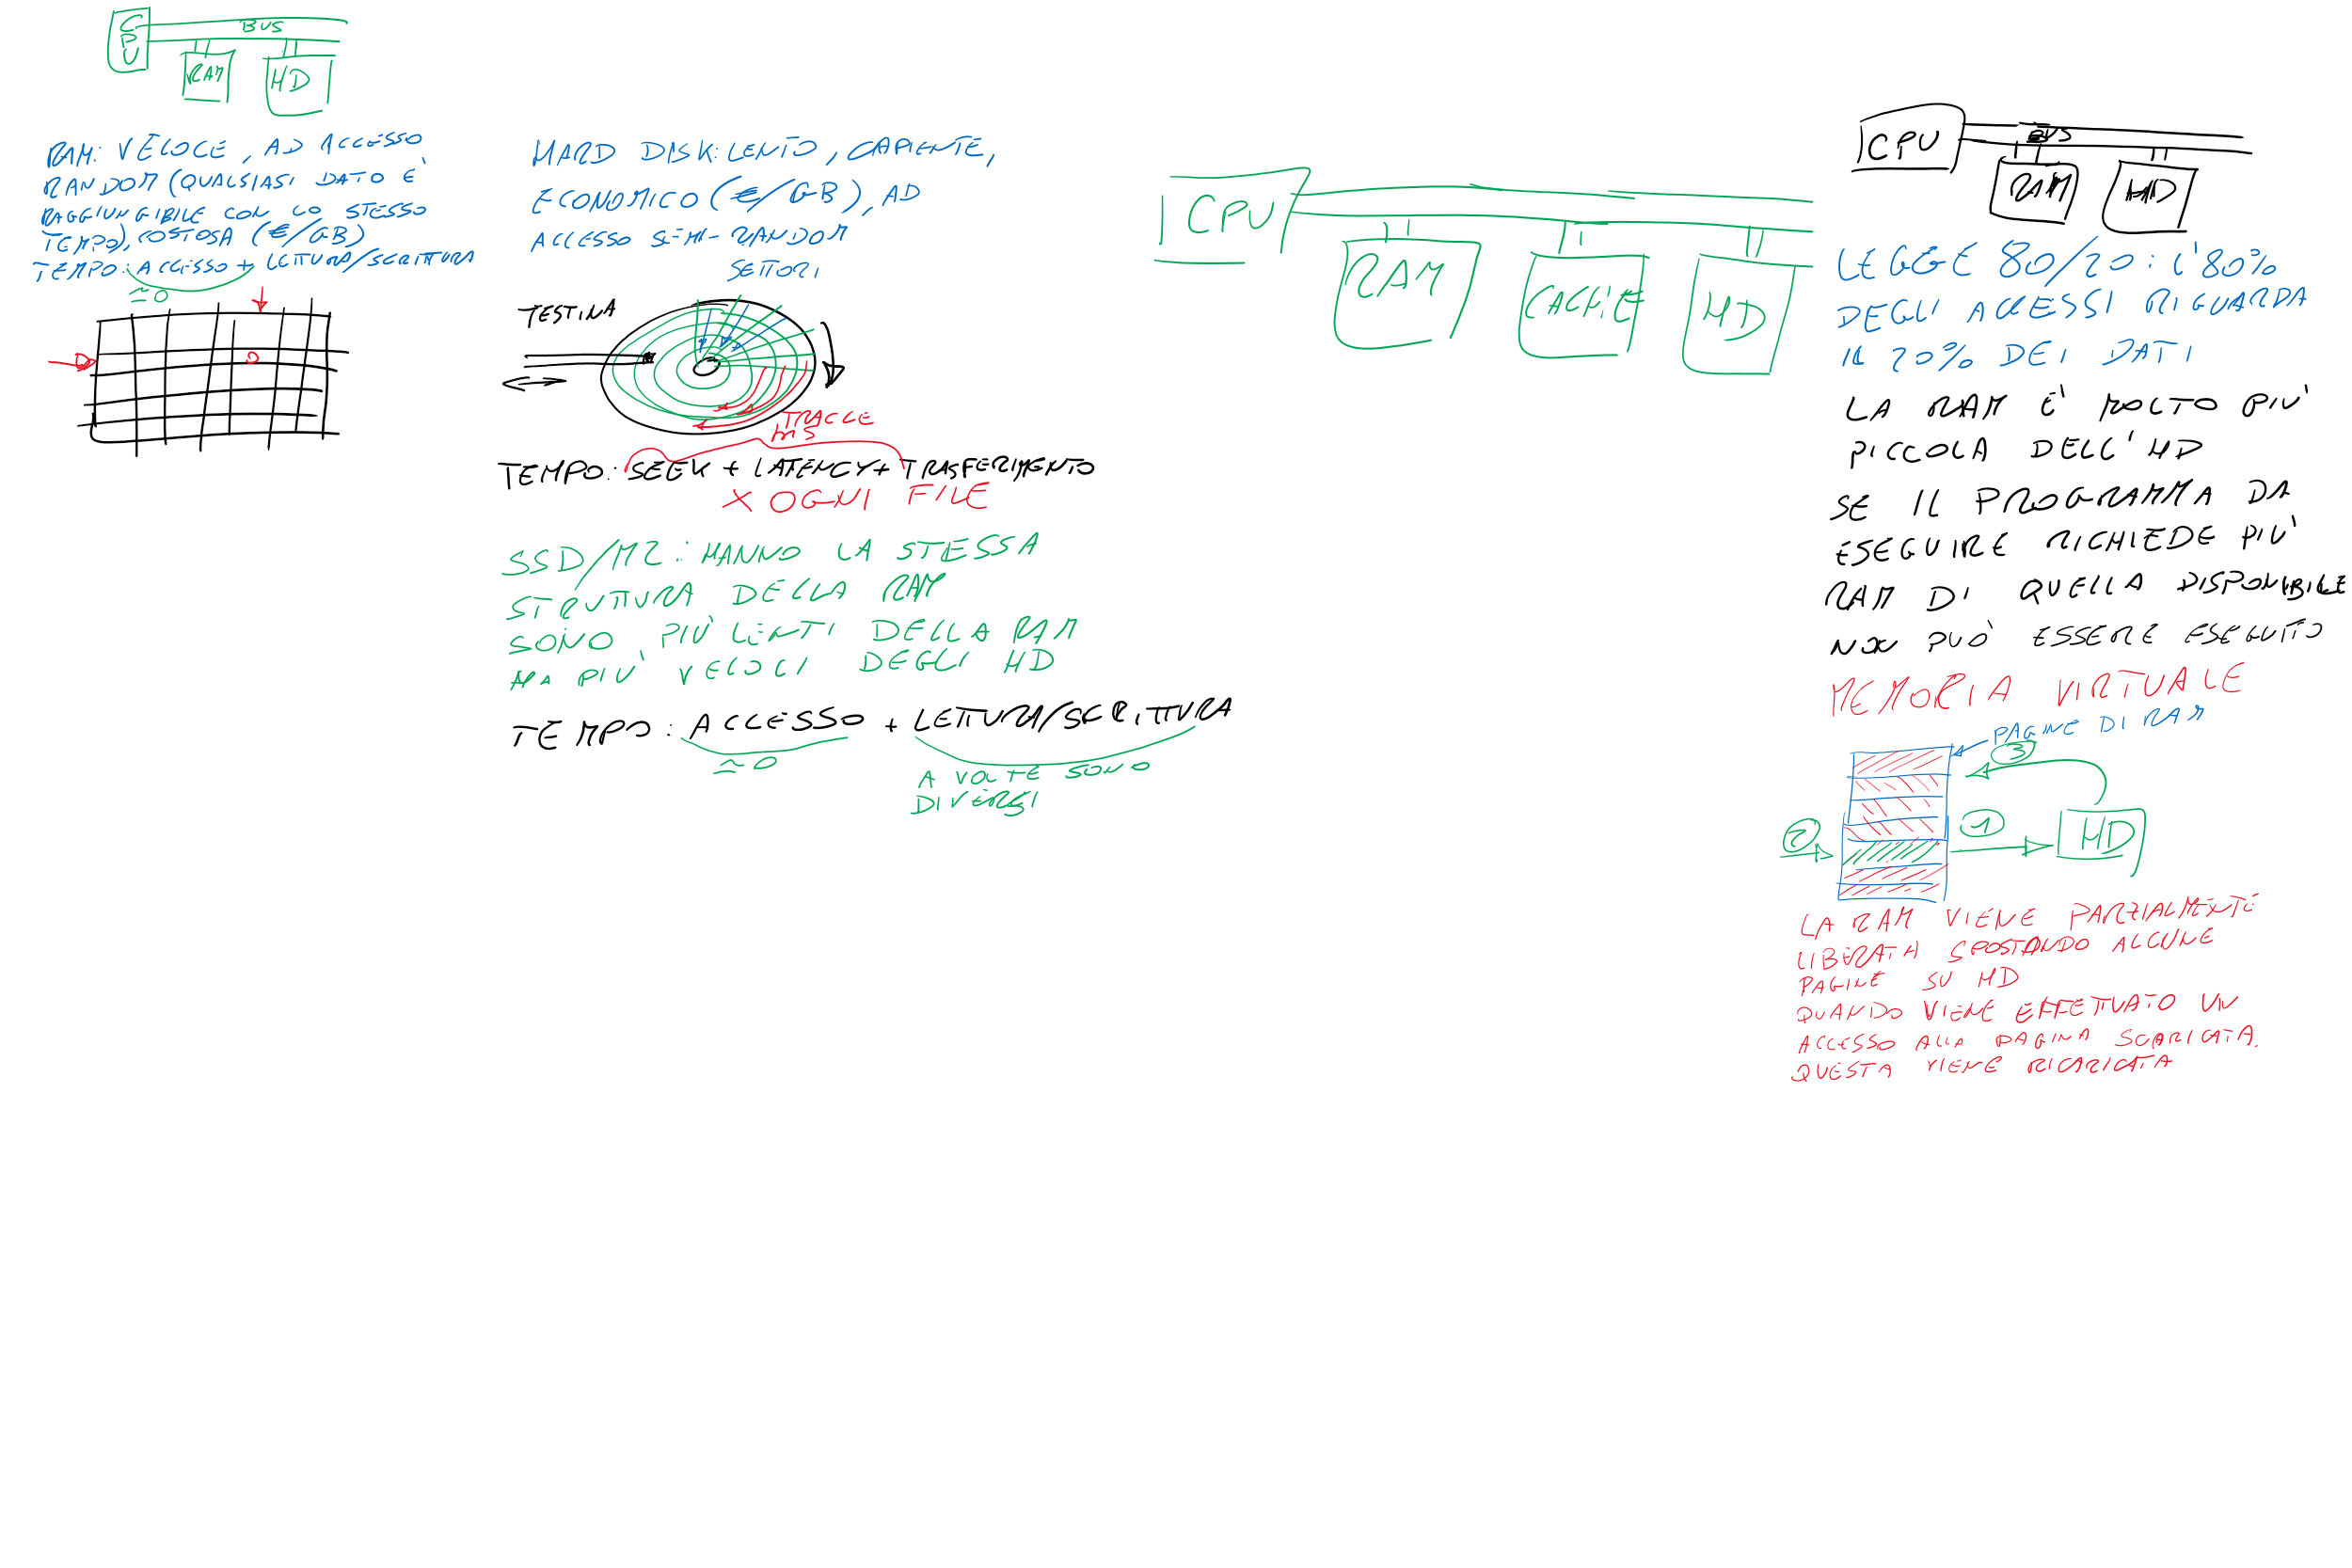 CPU
BUS
RAM
HD
RAM: VELOCE, AD ACCESSO
RANDOM (QUALSIASI DATO È
RAGGIUNGIBILE CON LO STESSO
TEMPO), COSTOSA (€/GB)
TEMPO: ACCESSO + LETTURA/SCRITTURA
≃0
HARD DISK: LENTO, CAPIENTE,
ECONOMICO (€/GB), AD
ACCESSO SEMI-RANDOM
SETTORI
TESTINA
TRACCE
ms
TEMPO: SEEK + LATENCY + TRASFERIMENTO
X OGNI FILE
SSD/M2: HANNO LA STESSA
STRUTTURA DELLA RAM
SONO PIÙ LENTI DELLA RAM
MA PIÙ VELOCI DEGLI HD
TEMPO: ACCESSO + LETTURA/SCRITTURA
≃0
A VOLTE SONO
DIVERSI
CPU
RAM
CACHE
HD
CPU
BUS
RAM
HD
LEGGE 80/20: L'80%
DEGLI ACCESSI RIGUARDA
IL 20% DEI DATI
LA RAM È MOLTO PIÙ
PICCOLA DELL'HD
SE IL PROGRAMMA DA
ESEGUIRE RICHIEDE PIÙ
RAM DI QUELLA DISPONIBILE
NON PUÒ ESSERE ESEGUITO
MEMORIA VIRTUALE
PAGINE DI RAM
3
2
1
HD
LA RAM VIENE PARZIALMENTE
LIBERATA SPOSTANDO ALCUNE
PAGINE SU HD
QUANDO VIENE EFFETTUATO UN
ACCESSO ALLA PAGINA SCARICATA.
QUESTA VIENE RICARICATA